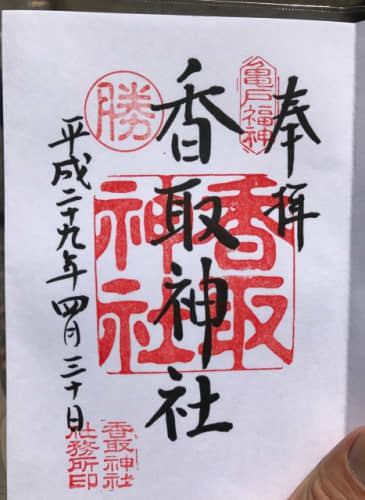 奉拝
亀戸福神
香取神社
香取神社
勝
平成二十九年四月三十日
香取神社
社務所印